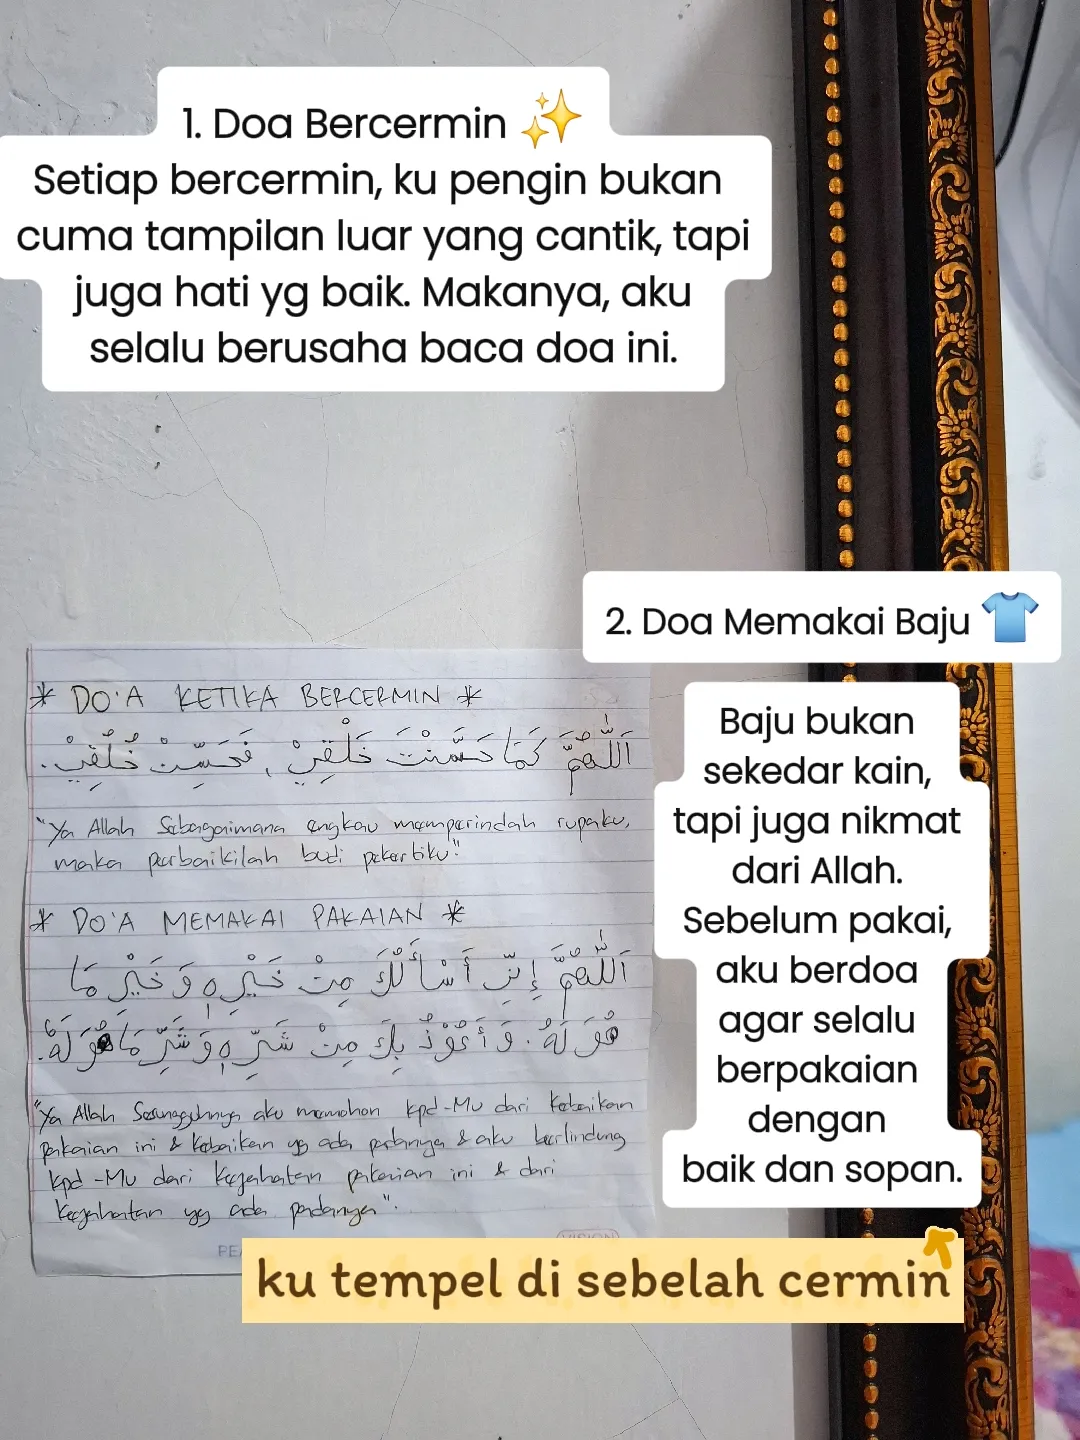 1. Doa Bercermin ✨
Setiap bercermin, ku pengin bukan
cuma tampilan luar yang cantik, tapi
juga hati yg baik. Makanya, aku
selalu berusaha baca doa ini.
2. Doa Memakai Baju 👕
Baju bukan
sekedar kain,
tapi juga nikmat
dari Allah.
Sebelum pakai,
aku berdoa
agar selalu
berpakaian
dengan
baik dan sopan.
* DO'A KETIKA BERCERMIN *
اَللّٰهُمَّ كَمَا حَسَّنْتَ خَلْقِيْ , فَحَسِّنْ خُلُقِيْ.
"Ya Allah Sebagaimana engkau memperindah rupaku,
maka perbaikilah budi pekertiku"
* DO'A MEMAKAI PAKAIAN *
اَللّٰهُمَّ إِنِّيْ أَسْأَلُكَ مِنْ خَيْرِهِ وَ خَيْرِ مَا
هُوَ لَهُ. وَ أَعُوْذُ بِكَ مِنْ شَرِّهِ وَ شَرِّ مَا هُوَ لَهُ.
"Ya Allah Sesungguhnya aku memohon kpd-Mu dari kebaikan
pakaian ini & kebaikan yg ada padanya & aku berlindung
kpd-Mu dari kejahatan pakaian ini & dari
kejahatan yg ada padanya".
VISION
ku tempel di sebelah cermin